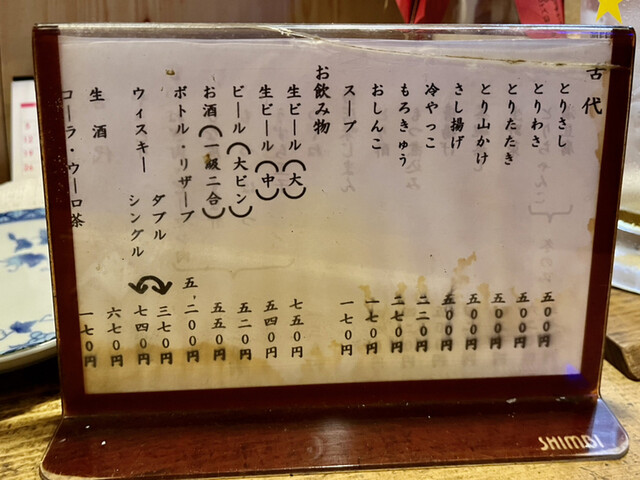 古代
とりさし 五〇〇円
とりわさ 五〇〇円
とりたたき 五〇〇円
とり山かけ 五〇〇円
さし揚げ 五〇〇円
冷やっこ 二二〇円
もろきゅう 二七〇円
おしんこ 一七〇円
スープ 一七〇円
お飲み物
生ビール(大) 七五〇円
生ビール(中) 五四〇円
ビール(大ビン) 五二〇円
お酒(一級二合) 五五〇円
ボトル・リザーブ 五、二〇〇円
ダブル 三七〇円
ウィスキー シングル 七四〇円
生酒 六七〇円
コーラ・ウーロ茶 一七〇円
SHIMBI